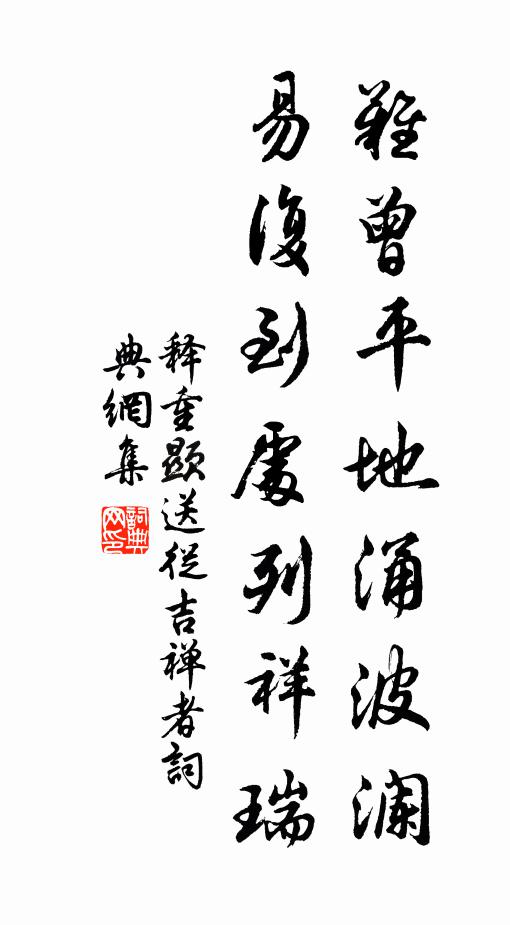 難曾平地涌波澜
易復到處列祥瑞
释重顯送從吉禅者詞
典網集
詞典網印